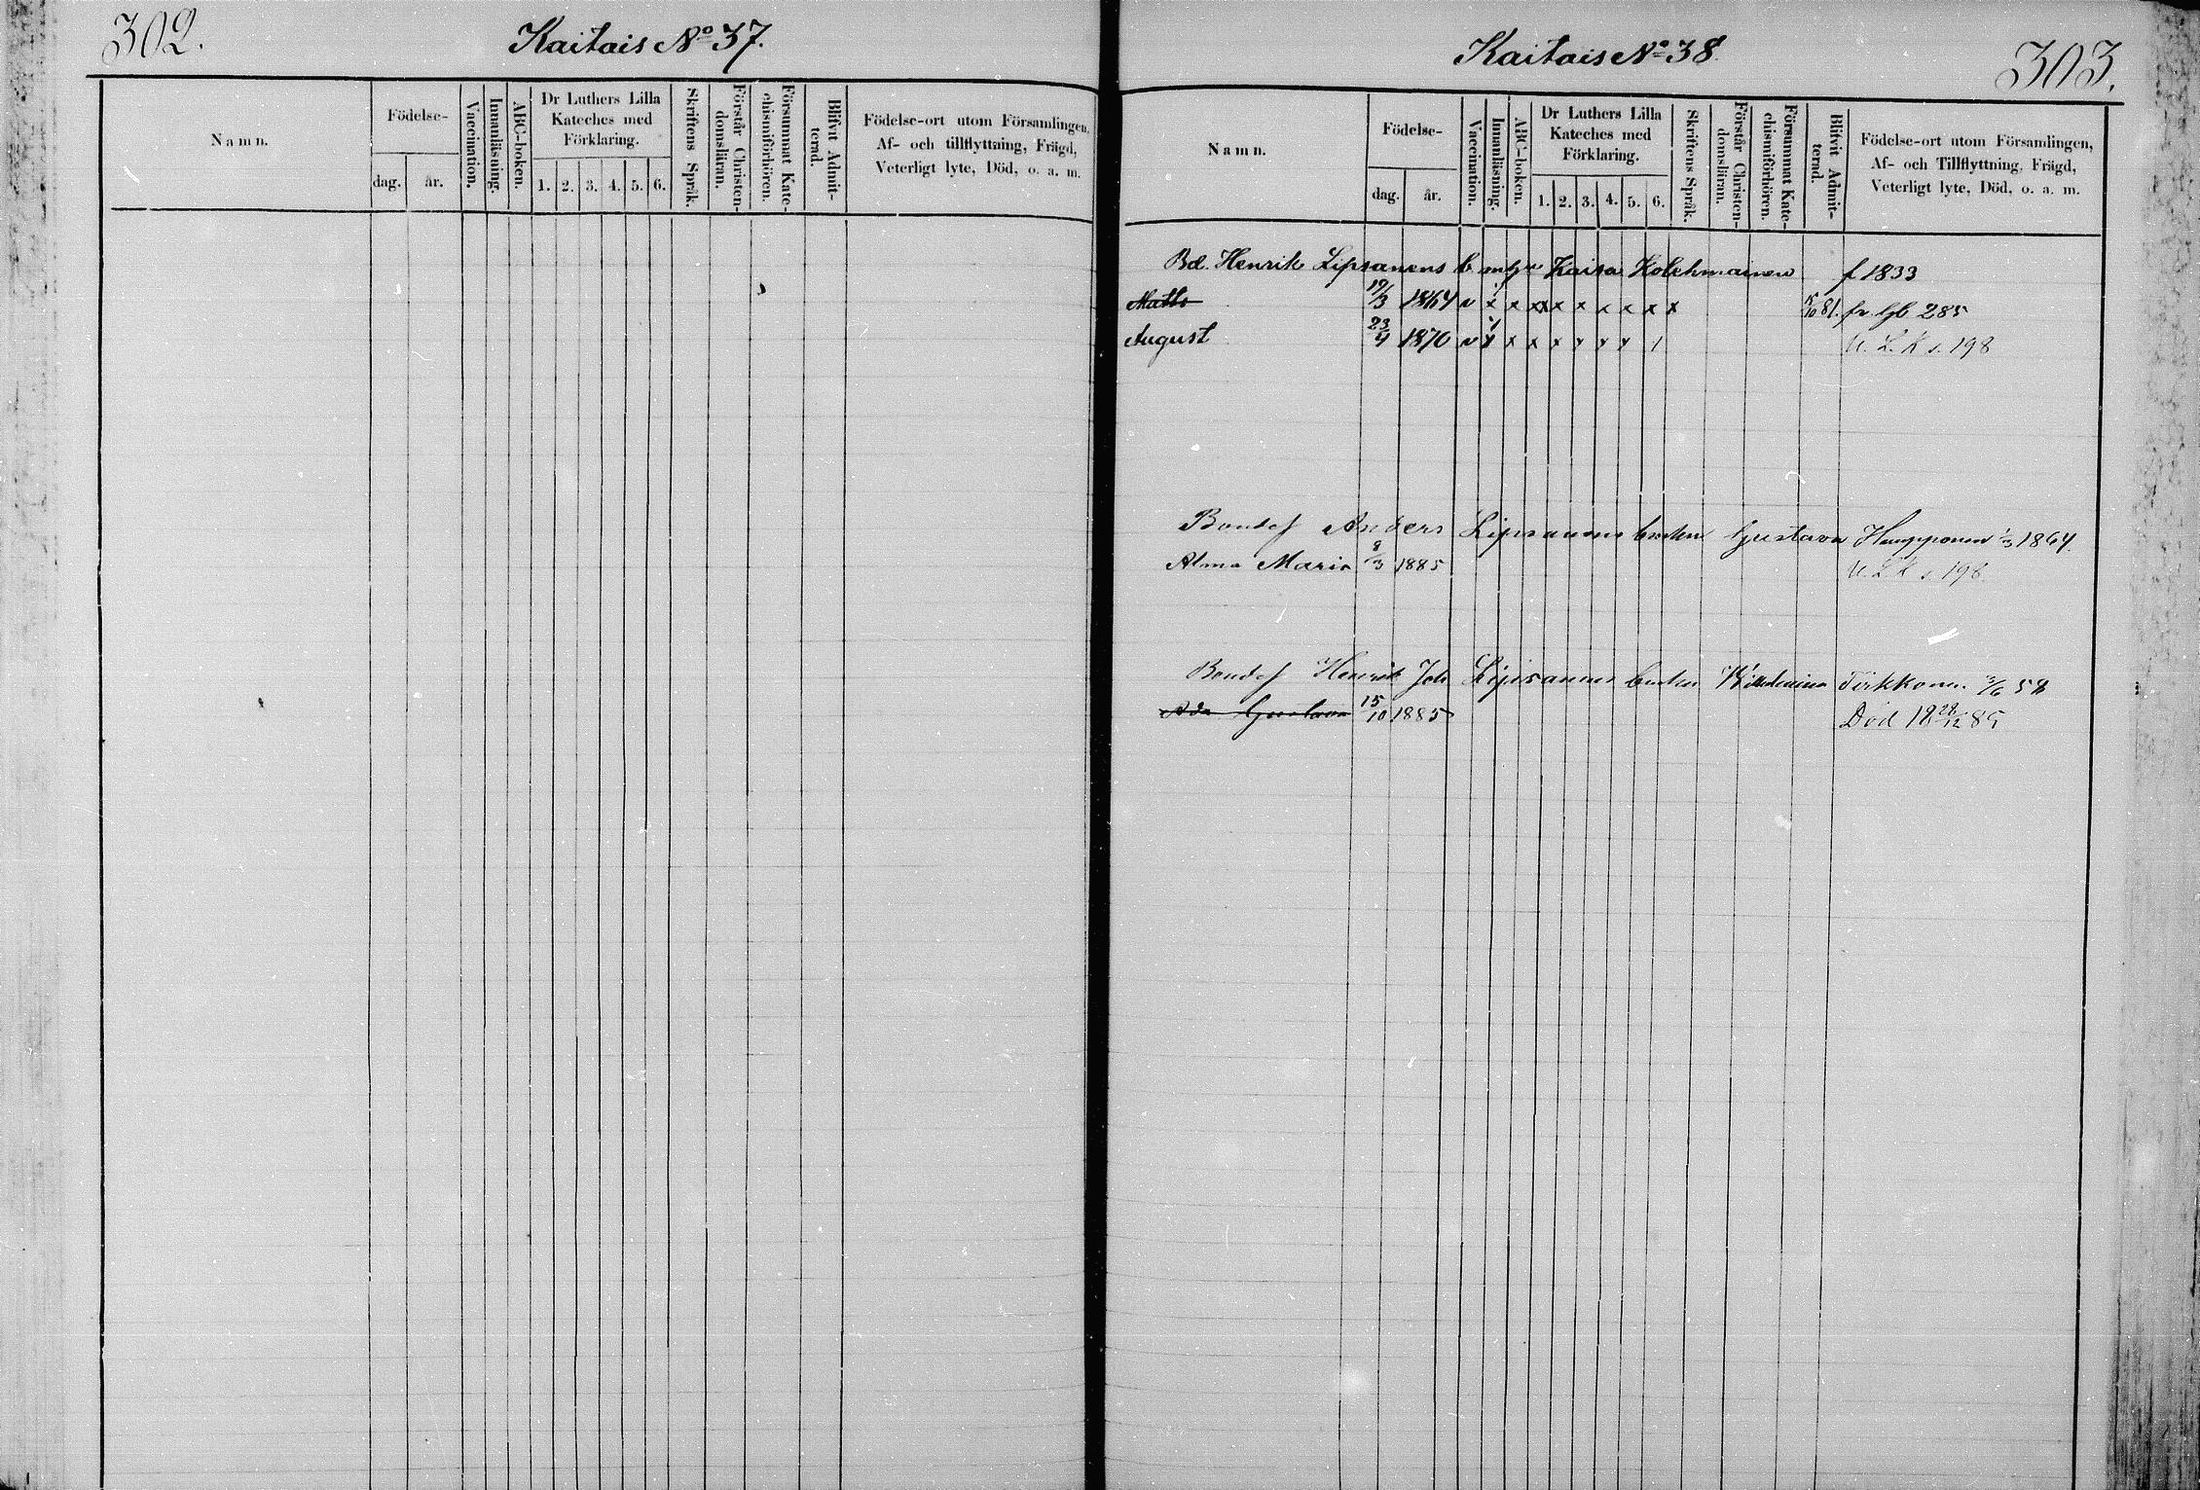 302.
Kaitais No 37.
Namn.
Födelse-
dag.
år.
Vaccination.
Innanläsning.
ABC-boken.
Dr Luthers Lilla
Kateches med
Förklaring.
1. 2. 3. 4. 5. 6.
Skriftens Språk.
Förstår Christen-
domsläran.
Försummat Kate-
chismiförhören.
Blifvit Admit-
terad.
Födelse-ort utom Församlingen,
Af- och tillflyttning, Frägd,
Veterligt lyte, Död, o. a. m.
Kaitais No 38
303.
Namn.
Födelse-
dag.
år.
Vaccination.
Innanläsning.
ABC-boken.
Dr Luthers Lilla
Kateches med
Förklaring.
1. 2. 3. 4. 5. 6.
Skriftens Språk.
Förstår Christen-
domsläran.
Försummat Kate-
chismiförhören.
Blifvit Admit-
terad.
Födelse-ort utom Församlingen,
Af- och Tillflyttning, Frägd,
Veterligt lyte, Död, o. a. m.
Bd. Henrik Lipsanens b m Kaisa Kolehmainen f 1833
Matts 1864 v x x x x x x x x x 81. fr. lgb 285
August 23/4 1870 v x x x x x x 198
Anders Lipsanens Gustava 1/3 1864.
Alma Maria 8/3 1885 198
Henrik Joh Lipsanens Tirkkonen
Ada Gustava 15/10 1885 Död 18 28/12 85